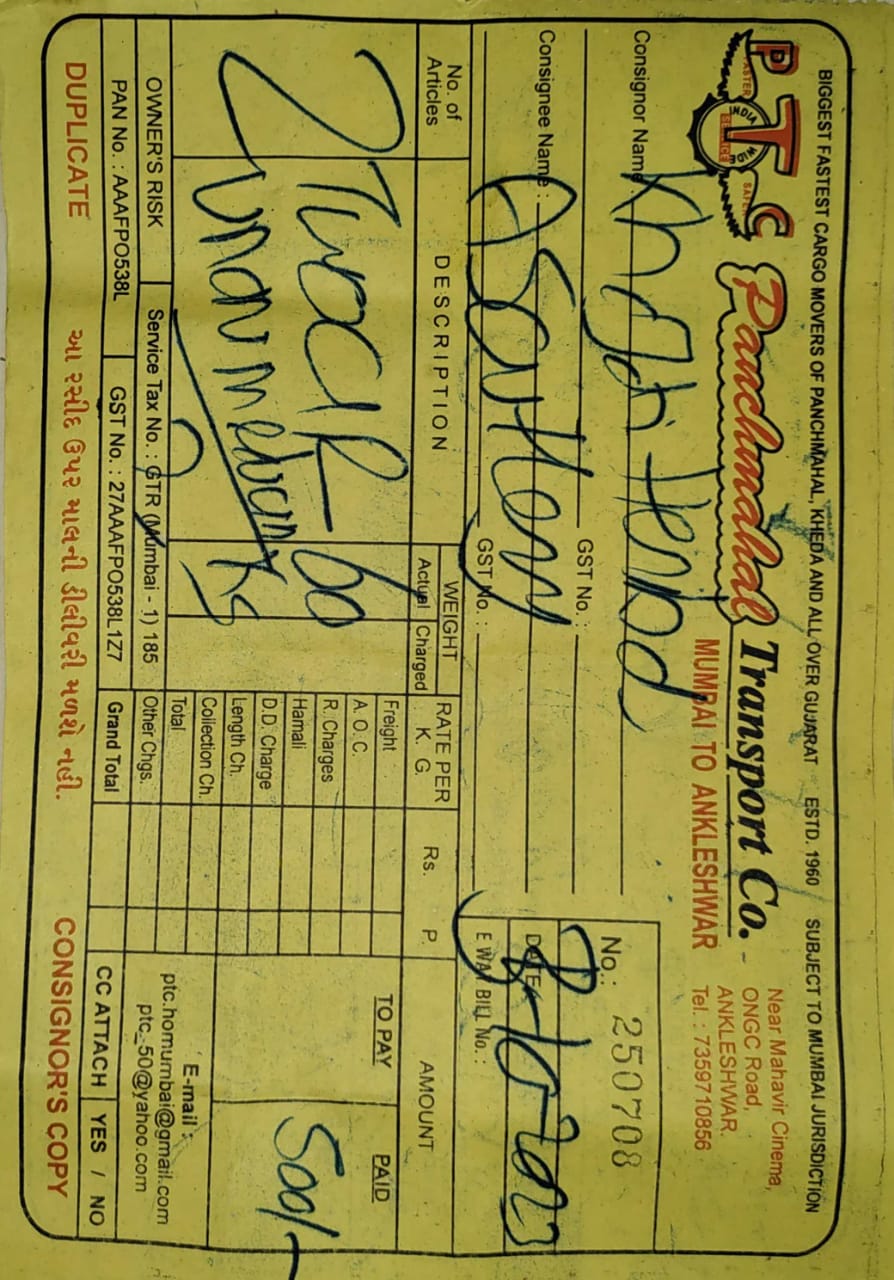 BIGGEST FASTEST CARGO MOVERS OF PANCHMAHAL, KHEDA AND ALL OVER GUJARAT ESTD. 1960 SUBJECT TO MUMBAI JURISDICTION
PTC
FASTER SAFER
INDIA WIDE
SERVICE
Panchmahal Transport Co.
MUMBAI TO ANKLESHWAR
Near Mahavir Cinema,
ONGC Road,
ANKLESHWAR.
Tel. : 7359710856
Consignor Name
GST No. :
No.: 250708
Consignee Name :
GST No. :
DATE 8-10-2023
E WAY BILL No. :
No. of Articles DESCRIPTION WEIGHT Actual Charged RATE PER K. G. Rs. P. AMOUNT
2 60
Kg
Freight
A. O. C.
R. Charges
Hamali
D.D. Charge
Length Ch.
Collection Ch.
Total
Other Chgs.
Grand Total
TO PAY PAID
500/-
OWNER'S RISK Service Tax No. : GTR (Mumbai - 1) 185
PAN No. : AAAFPO538L GST No. : 27AAAFPO538L1Z7
E-mail :
ptc.homumbai@gmail.com
ptc_50@yahoo.com
CC ATTACH YES / NO
DUPLICATE આ રસીદ ઉપર માલની ડીલીવરી મળશે નહી. CONSIGNOR'S COPY